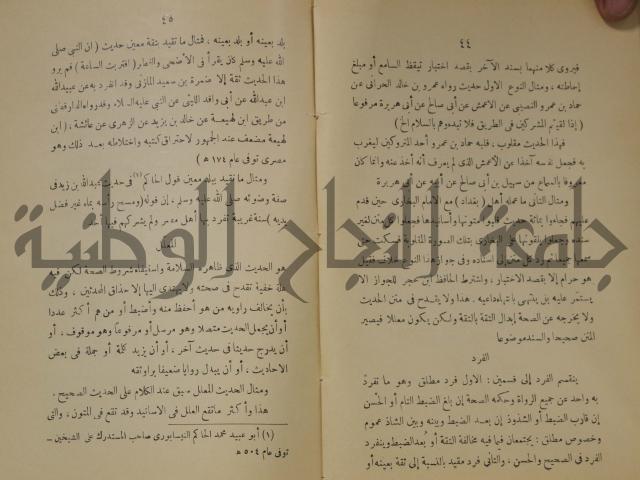 ٤٤
فيروى كلا منهما بسند الآخر بقصد اختبار تيقظ السامع أو مبلغ
إحاطته ، ومثال النوع الاول حديث رواه عمرو بن خالد الحرانى عن
حماد بن عمرو النصيبي عن الاعمش عن أبى صالح عن أبى هريرة مرفوعا
( إذا لقيتم المشركين فى الطريق فلا تبدءوهم بالسلام الخ )
فهذا الحديث مقلوب ، قلبه حماد بن عمرو أحد المتروكين ليغرب
به فجعل نفسه آخذا عن الأعمش الذى لم يعرف أنه أخذ عنه وانما كان
معروفا بالسماع من سهيل بن أبى صالح عن أبيه عن أبى هريرة
ومثال الثانى ما عمله أهل ( بغداد ) مع الامام البخارى حين قدم
عليهم فجاءوا بمائة حديث قلبوا متونها وأسانيدها فجعلوا
هو حرام إلا بقصد الاختبار ، واشترط الحافظ ابن حجر للجواز ألا
يستمر عليه بل ينتهى بانتهاء داعيه . هذا ولا يقدح فى متن الحديث
ولا يخرجه عن الصحة إبدال الثقة بالثقة ولكن يكون معللا فيصير
المتن صحيحا والسند موضوعا
الفرد
ينقسم الفرد إلى قسمين : الاول فرد مطلق وهو ما تفرد
به واحد عن جميع الرواة وحكمه الصحة إن بلغ الضبط التام أو الحسن
إن قارب الضبط أو الشذوذ إن بعد الضبط وبينه وبين الشاذ عموم
وخصوص مطلق : يجتمعان فيما فيه مخالفة الثقة أو بعد الضبط وينفرد
الفرد فى الصحيح والحسن ، والثانى فرد مقيد بالنسبة إلى ثقة بعينه أو
٤٥
بلد بعينه أو بلد بعينه ، فمثال ما تقيد بثقة معين حديث ( ان النبى صلى
الله عليه وسلم كان يقرأ فى الأضحى والفطر ( اقتربت الساعة ) فلم يرو
هذا الحديث ثقة إلا ضمرة بن سعيد المازنى وقد انفرد به عن عبيدالله
ابن عبدالله عن أبى واقد الليثى عن النبى عليه السلام وقد رواه الدارقطنى
من طريق ابن لهيعة عن خالد بن يزيد عن الزهرى عن عائشة ، ( ابن
لهيعة مضعف عند الجمهور لاحتراق كتبه واختلاطه بعد ذلك وهو
مصرى توفى عام ١٧٤ ه )
ومثال ما تقيد ببلد معين قول الحاكم (١) فى حديث عبدالله بن زيد فى
صفة وضوئه صلى الله عليه وسلم ، إن قوله ( ومسح رأسه بماء غير فضل
يديه ) سنة غريبة تفرد بها أهل مصر ولم يشركهم فيها أحد
المعلل
هو الحديث الذى ظاهره السلامة واستيفاء شروط الصحة لكن فيه
علة خفية تقدح فى صحته ولا يهتدى اليها إلا حذاق المحدثين ، وذلك
بأن يخالف راويه من هو أحفظ منه وأضبط أو من هم أكثر عددا
أو أن يجعل الحديث متصلا وهو مرسل أو مرفوعا وهو موقوف ، أو
أن يدرج حديثا فى حديث آخر ، أو أن يزيد كلمة أو جملة فى بعض
الاحاديث ، أو أن يبدل راويا ضعيفا براو ثقة
ومثال الحديث المعلل سبق عند الكلام على الحديث الصحيح .
هذا وأكثر ما تقع العلل فى الاسانيد وقد تقع فى المتون ، والتى
(١) أبو عبيد محمد الحاكم النيسابورى صاحب المستدرك على الشيخين –
توفى عام ٥٠٤ ه
جامعة النجاح الوطنية